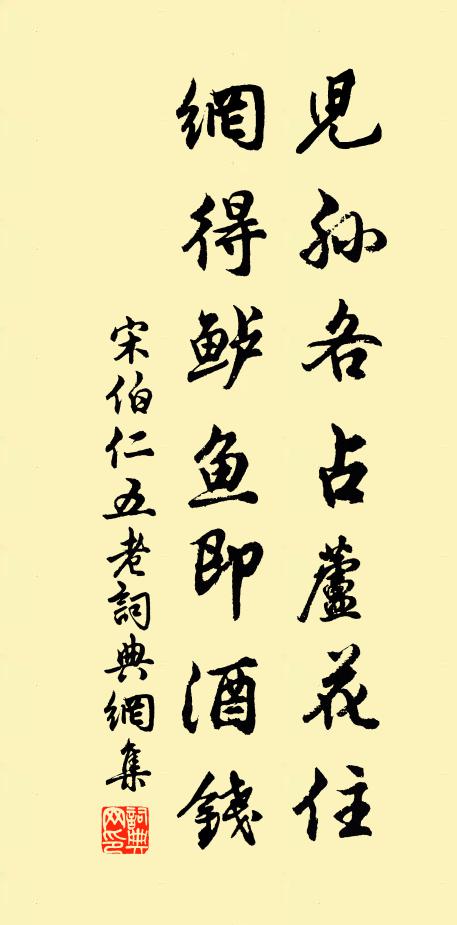 児孙各占蘆花住
網得鲈鱼即酒錢
宋伯仁五老詞典網集
詞典网印